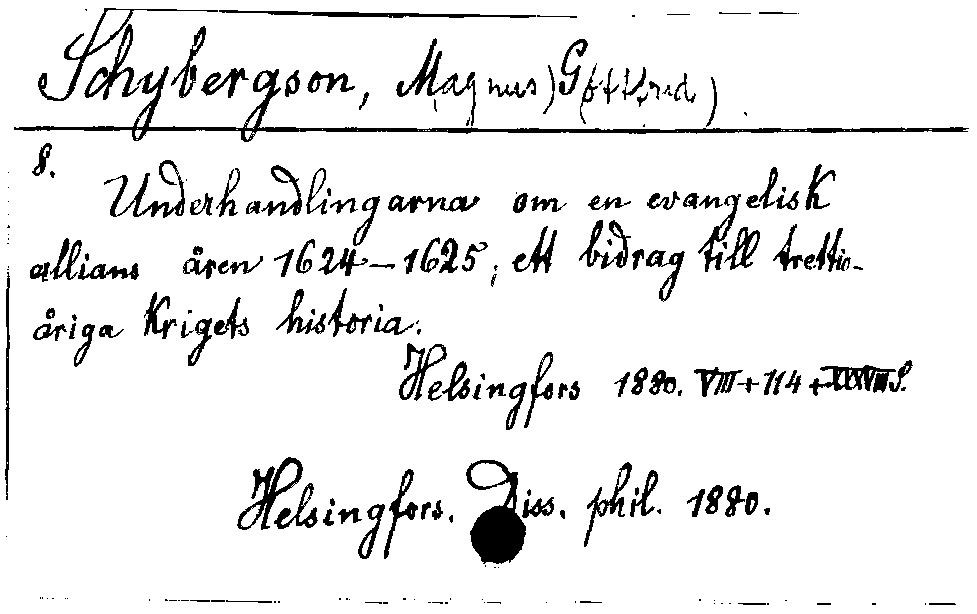 Schybergson, M(agnus) G(ottfrid)
8.
Underhandlingarna om en evangelisk
allians åren 1624-1625, ett bidrag till trettio-
åriga krigets historia.
Helsingfors 1880. VIII+114+XXXVIII S.
Helsingfors. Diss. phil. 1880.